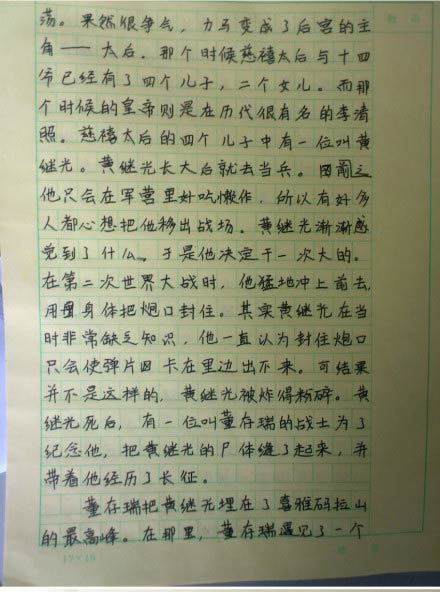 荡。果然很争气，力马变成了后宫的主
角——太后。那个时候慈禧太后与十四
爷已经有了四个儿子，二个女儿。而那
个时候的皇帝则是在历代很有名的李清
照。慈禧太后的四个儿子中有一位叫黄
继光。黄继光长大后就去当兵。因前
他只会在军营里好吃懒作，所以有好多
人都心想把他移出战场。黄继光渐渐感
觉到了什么。于是他决定干一次大的。
在第二次世界大战时，他猛地冲上前去，
用身体把炮口封住。其实黄继光在当
时非常缺乏知识，他一直认为封住炮口
只会使弹片卡在里边出不来。可结果
并不是这样的，黄继光被炸得粉碎。黄
继光死后，有一位叫董存瑞的战士为了
纪念他，把黄继光的尸体缝了起来，并
带着他经历了长征。
董存瑞把黄继光埋在了喜雅码拉山
的最高峰。在那里，董存瑞遇见了一个